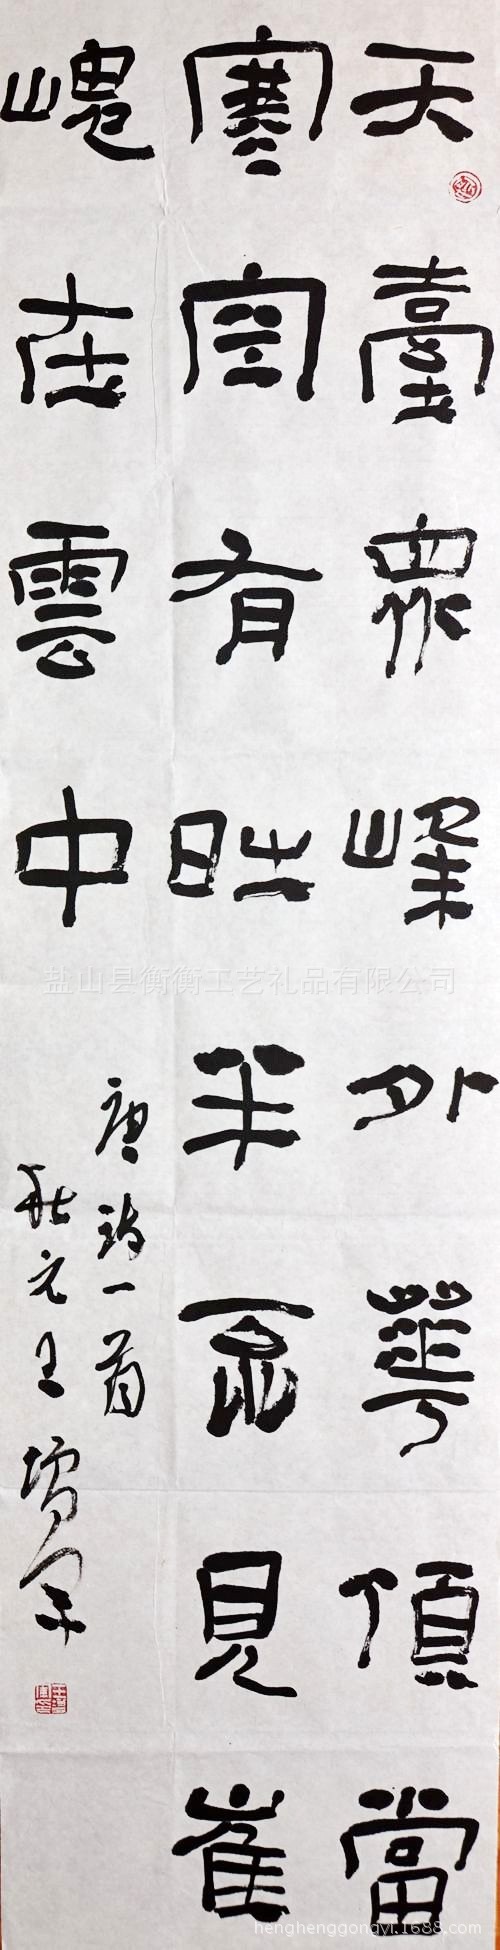 天臺眾峰外華頂當
寒空有時半不見崔
嵬在雲中
唐詩一首
王
盐山县衡衡工艺礼品有限公司
henghenggongyi.1688.com